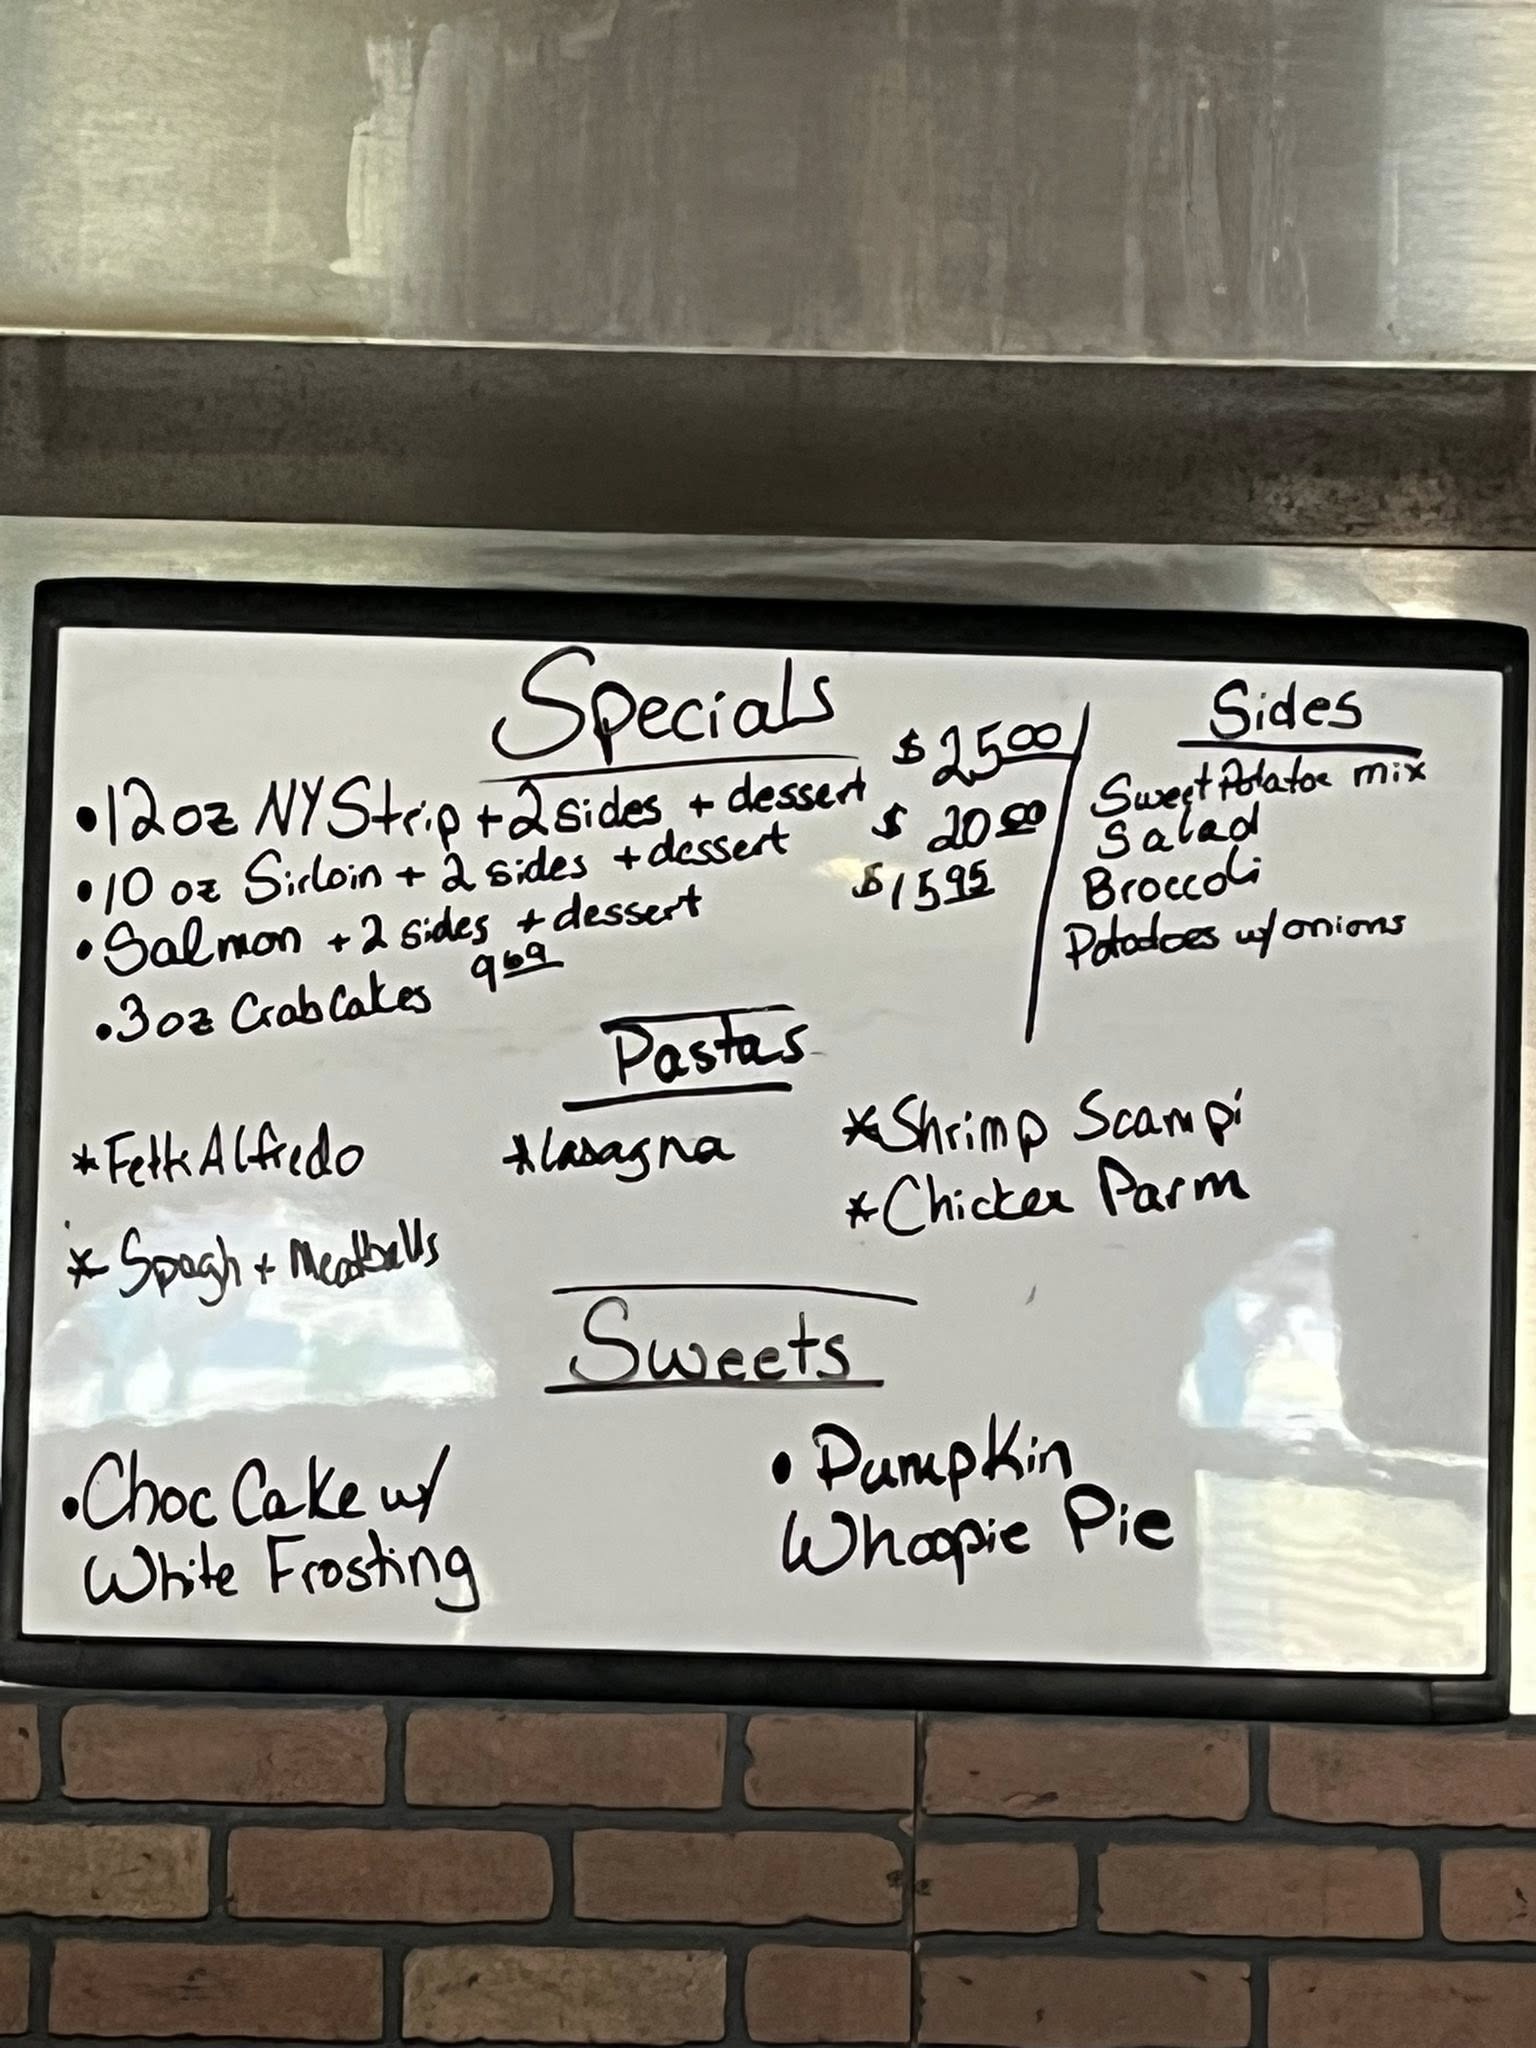 Specials
• 12 oz NY Strip + 2 sides + dessert $25.00
• 10 oz Sirloin + 2 sides + dessert $20.00
• Salmon + 2 sides + dessert $15.95
• 3 oz Crab Cakes
Sides
Sweet Potatoe mix
Salad
Broccoli
Potatoes w/ onions
Pastas
* Fett Alfredo
* Lasagna
* Shrimp Scampi
* Chicken Parm
* Spagh + Meatballs
Sweets
• Choc Cake w/
White Frosting
• Pumpkin
Whoopie Pie